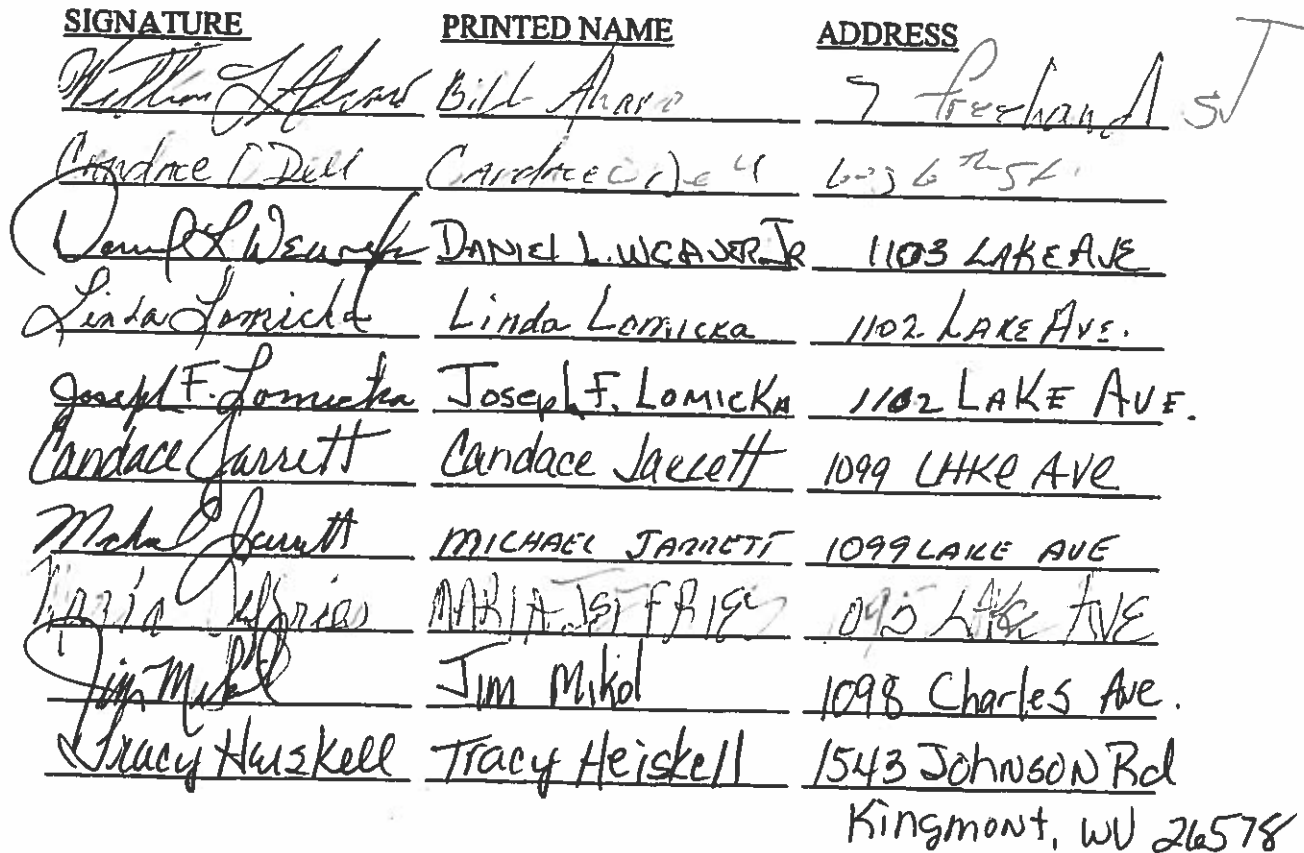 SIGNATURE PRINTED NAME ADDRESS
William L Bill 7 Freehand St
Candace Dell Candace 6th St.
Daniel L Weaver Jr DANIEL L. WEAVER JR 1103 LAKE AVE
Linda Lomicka Linda Lomicka 1102 LAKE AVE.
Joseph F. Lomicka Joseph F. LOMICKA 1102 LAKE AVE.
Candace Jarrett Candace Jarrett 1099 LAKE AVE
Michael Jarrett MICHAEL JARRETT 1099 LAKE AVE
Maria Jeffries MARIA JEFFRIES LAKE AVE
Jim Mikol Jim Mikol 1098 Charles Ave.
Tracy Heiskell Tracy Heiskell 1543 Johnson Rd
Kingmont, WV 26578